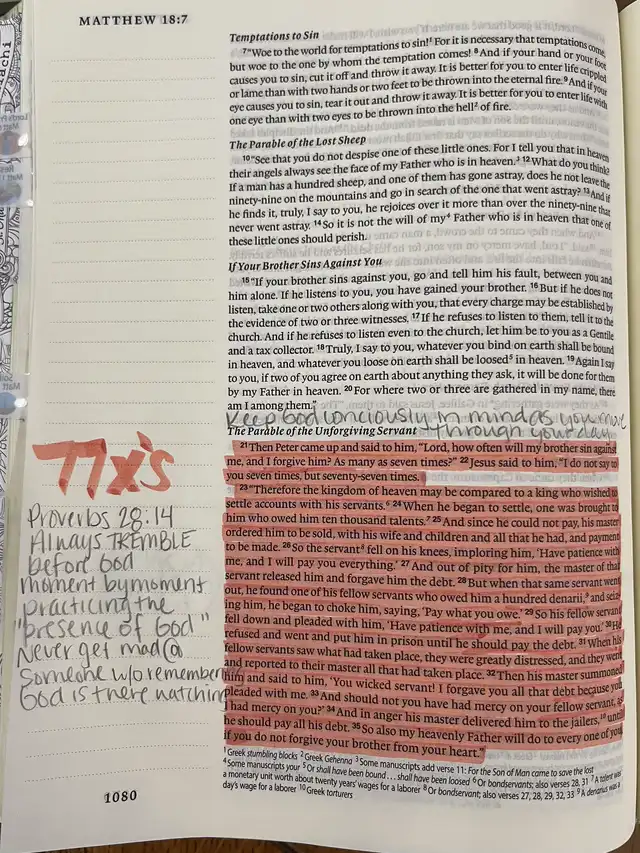 MATTHEW 18:7
Temptations to Sin
7 "Woe to the world for temptations to sin!1 For it is necessary that temptations come,
but woe to the one by whom the temptation comes! 8 And if your hand or your foot
causes you to sin, cut it off and throw it away. It is better for you to enter life crippled
or lame than with two hands or two feet to be thrown into the eternal fire. 9 And if your
eye causes you to sin, tear it out and throw it away. It is better for you to enter life with
one eye than with two eyes to be thrown into the hell2 of fire.
The Parable of the Lost Sheep
10 "See that you do not despise one of these little ones. For I tell you that in heaven
their angels always see the face of my Father who is in heaven.3 12 What do you think?
If a man has a hundred sheep, and one of them has gone astray, does he not leave the
ninety-nine on the mountains and go in search of the one that went astray? 13 And if
he finds it, truly, I say to you, he rejoices over it more than over the ninety-nine that
never went astray. 14 So it is not the will of my4 Father who is in heaven that one of
these little ones should perish.
If Your Brother Sins Against You
15 "If your brother sins against you, go and tell him his fault, between you and
him alone. If he listens to you, you have gained your brother. 16 But if he does not
listen, take one or two others along with you, that every charge may be established by
the evidence of two or three witnesses. 17 If he refuses to listen to them, tell it to the
church. And if he refuses to listen even to the church, let him be to you as a Gentile
and a tax collector. 18 Truly, I say to you, whatever you bind on earth shall be bound
in heaven, and whatever you loose on earth shall be loosed5 in heaven. 19 Again I say
to you, if two of you agree on earth about anything they ask, it will be done for them
by my Father in heaven. 20 For where two or three are gathered in my name, there
am I among them."
Keep God conciously in mind as you move
through your day
The Parable of the Unforgiving Servant
21 Then Peter came up and said to him, "Lord, how often will my brother sin against
me, and I forgive him? As many as seven times?" 22 Jesus said to him, "I do not say to
you seven times, but seventy-seven times.
23 "Therefore the kingdom of heaven may be compared to a king who wished to
settle accounts with his servants.6 24 When he began to settle, one was brought to
him who owed him ten thousand talents.7 25 And since he could not pay, his master
ordered him to be sold, with his wife and children and all that he had, and payment
to be made. 26 So the servant8 fell on his knees, imploring him, 'Have patience with
me, and I will pay you everything.' 27 And out of pity for him, the master of that
servant released him and forgave him the debt. 28 But when that same servant went
out, he found one of his fellow servants who owed him a hundred denarii,9 and seiz-
ing him, he began to choke him, saying, 'Pay what you owe.' 29 So his fellow servant
fell down and pleaded with him, 'Have patience with me, and I will pay you.' 30 He
refused and went and put him in prison until he should pay the debt. 31 When his
fellow servants saw what had taken place, they were greatly distressed, and they went
and reported to their master all that had taken place. 32 Then his master summoned
him and said to him, 'You wicked servant! I forgave you all that debt because you
pleaded with me. 33 And should not you have had mercy on your fellow servant, as
I had mercy on you?' 34 And in anger his master delivered him to the jailers,10 until
he should pay all his debt. 35 So also my heavenly Father will do to every one of you,
if you do not forgive your brother from your heart."
1 Greek stumbling blocks 2 Greek Gehenna 3 Some manuscripts add verse 11: For the Son of Man came to save the lost
4 Some manuscripts your 5 Or shall have been bound . . . shall have been loosed 6 Or bondservants; also verses 28, 31 7 A talent was
a monetary unit worth about twenty years' wages for a laborer 8 Or bondservant; also verses 27, 28, 29, 32, 33 9 A denarius was a
day's wage for a laborer 10 Greek torturers
71x's
Proverbs 28:14
Always TREMBLE
before God
moment by moment
practicing the
"presence of God"
Never get mad @
someone w/o remember
God is there watching
1080